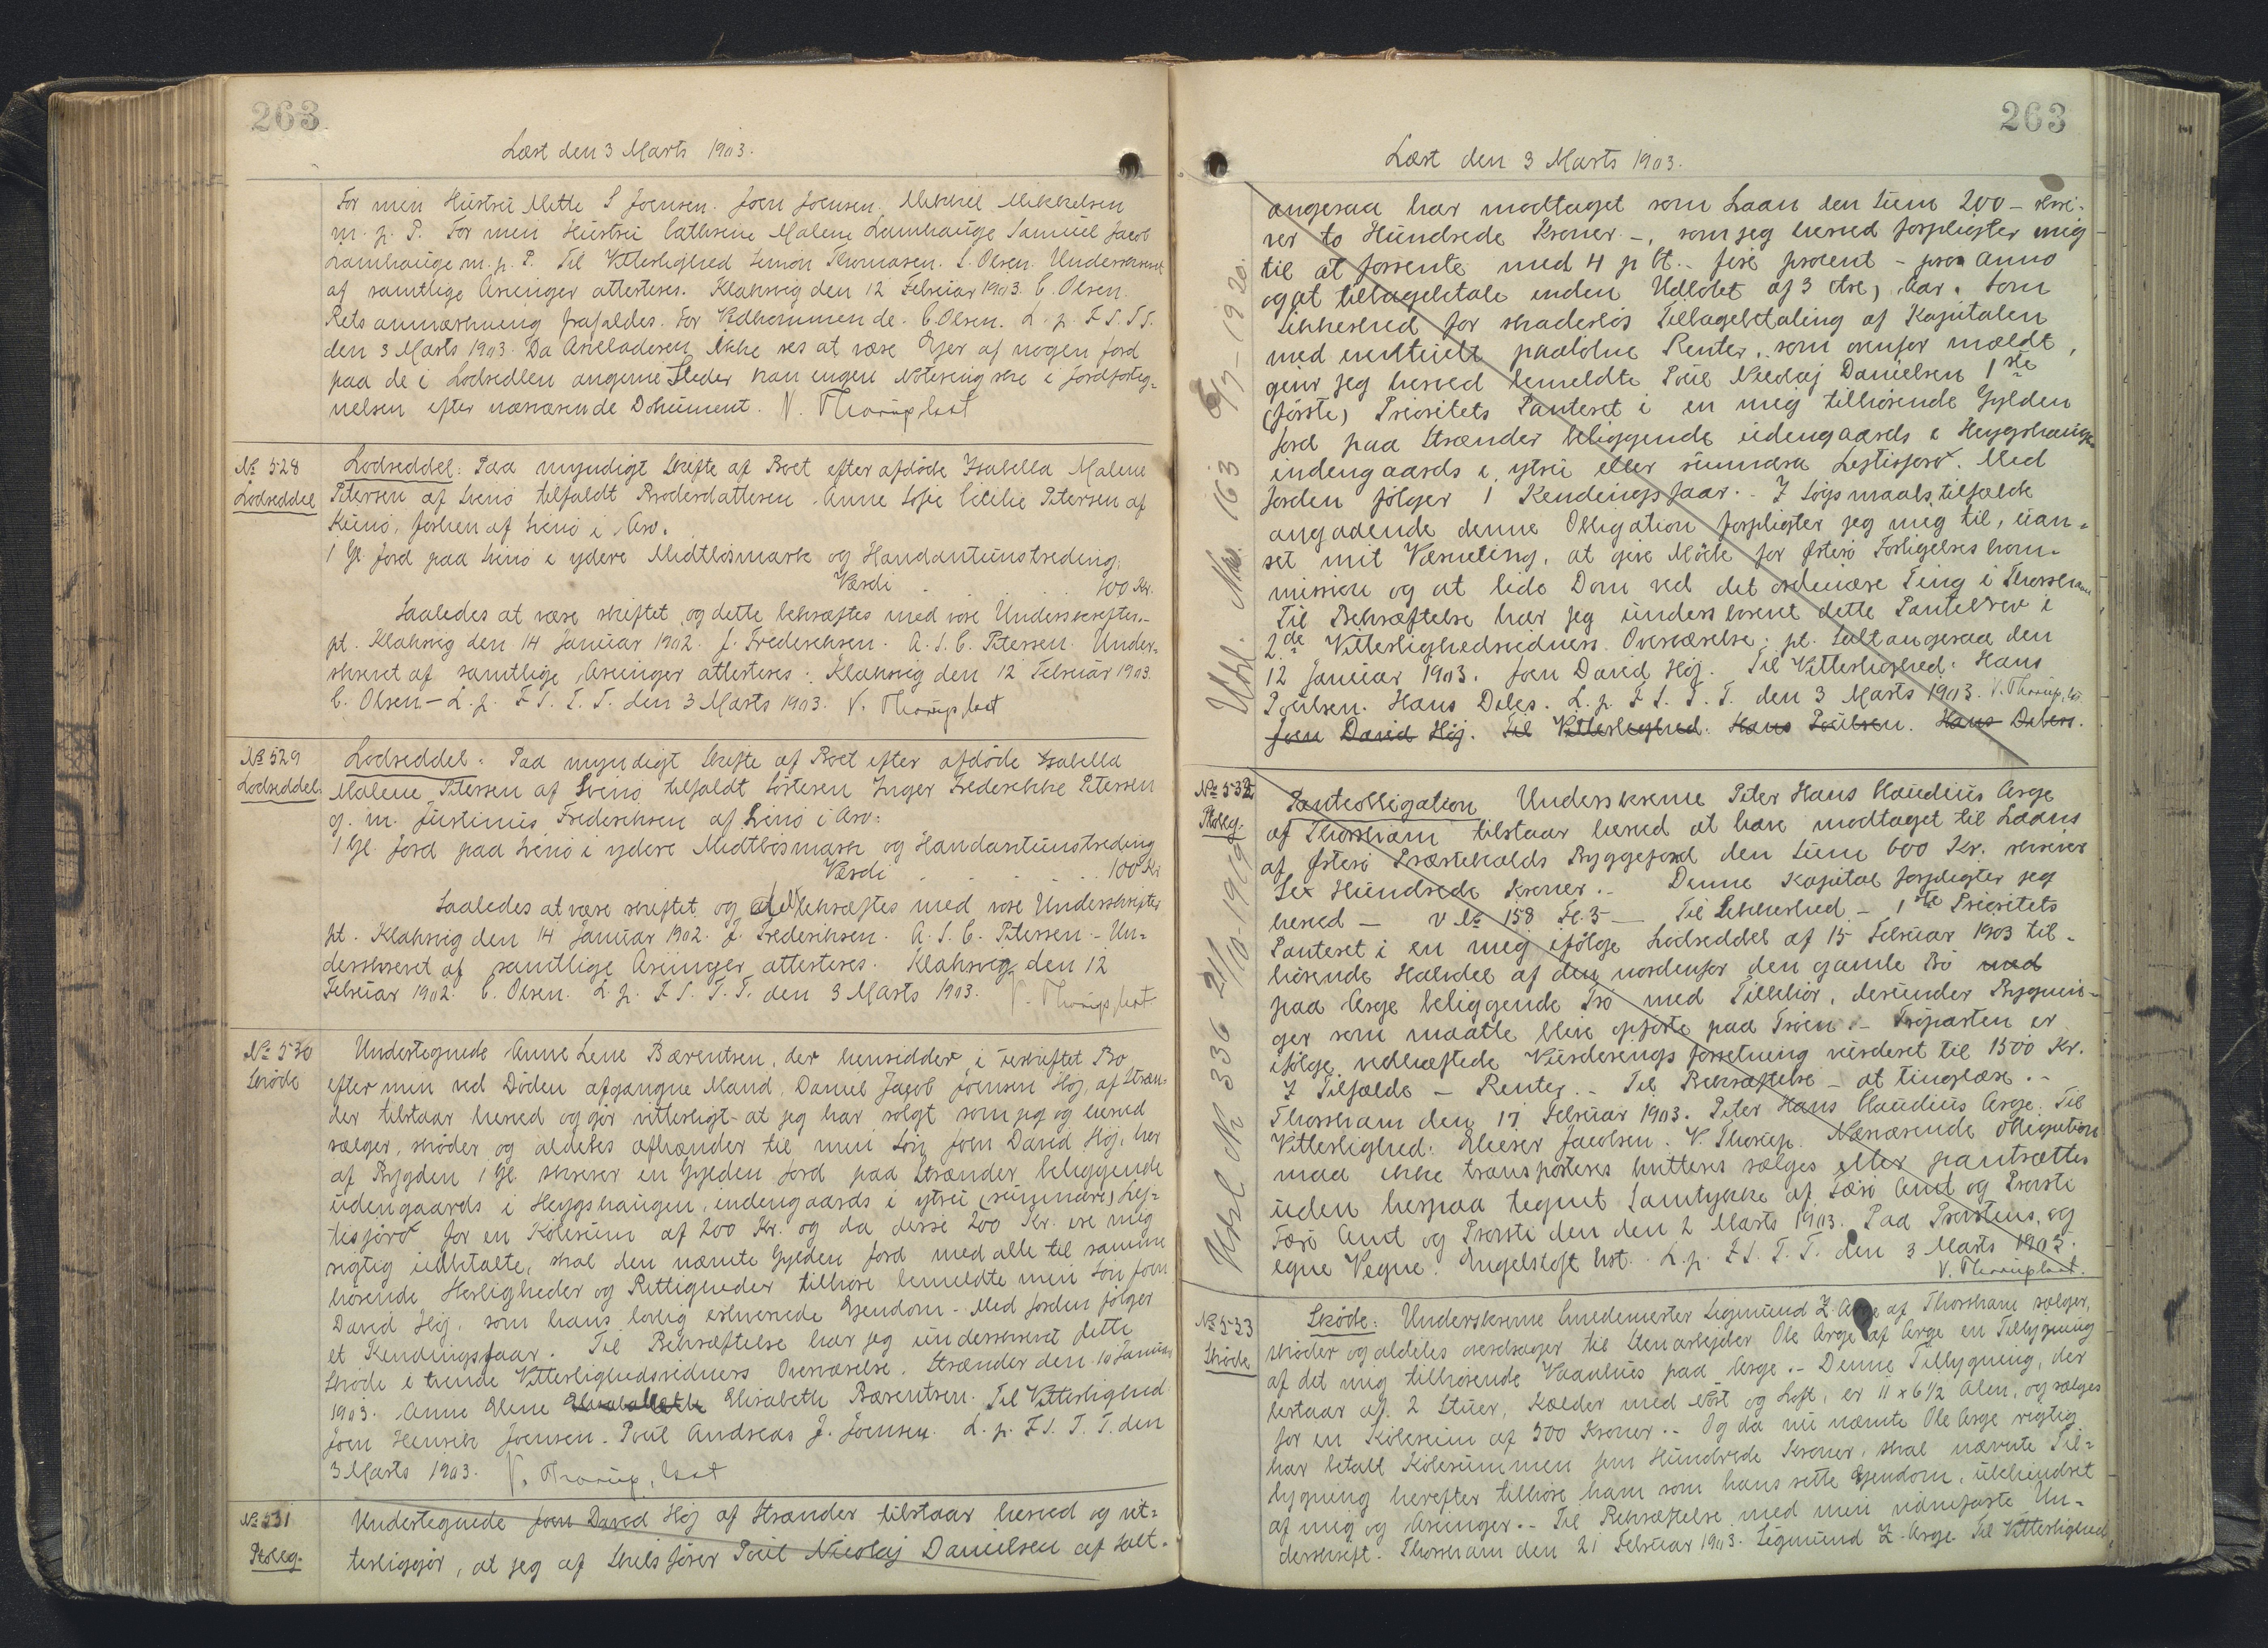 263
Læst den 3 Marts 1903.
For min Hustru Mette S Joensen. Joen Joensen. Mikkiel Mikkelsen
m. p. P. For min Hustru Cathrine Malene Lamhauge Samuel Jacob
Lamhauge m. p. P. Til Vitterlighed Simon Thomasen. S. Olsen. Underskrevet
af samtlige Arvinger attesteres. Klaksvig den 12 Februar 1903. C. Olsen.
Rets anmærkning frafaldes. For Vedkommende. C. Olsen. L. p. F S. T T.
den 3 Marts 1903. Da Arveladeren ikke ses at være Ejer af nogen Jord
paa de i Lodsedlen angivne Steder kan ingen Notering ske i Jordforteg-
nelsen efter nærværende Dokument. V. Thorup, kst
No 528
Lodseddel
Lodseddel: Paa myndigt Skifte af Boet efter afdøde Isabella Malene
Petersen af Svinø tilfaldt Broderdatteren Anne Sofie Cecilie Petersen af
Kunø, forhen af Svinø i Arv.
1 Gl. Jord paa Svinø i ydere Midtbøsmark og Handantunstreding.
Værdi . . . 100 Kr.
Saaledes at være skiftet, og dette bekræftes med vore Underskrifter.-
pt. Klaksvig den 14 Januar 1902. J. Frederiksen. A. S. C. Petersen. Under-
skrevet af samtlige Arvinger attesteres. Klaksvig den 12 Februar 1903.
C. Olsen - L. p. F S. T. T. den 3 Marts 1903. V. Thorup kst
No 529
Lodseddel.
Lodseddel: Paa myndigt Skifte af Boet efter afdøde Isabella
Malene Petersen af Svinø tilfaldt Søsteren Inger Frederikke Petersen
g. m. Justinus Frederiksen af Svinø i Arv:
1 Gl. Jord paa Svinø i ydere Midtbøsmark og Handantunstreding
Værdi . . . . . 100 Kr
Saaledes at være skiftet og bekræftes med vore Underskrifter
pt. Klaksvig den 14 Januar 1902. J. Frederiksen. A. S. C. Petersen - Un-
derskrevet af samtlige Arvinger attesteres. Klaksvig den 12
Februar 1902. C. Olsen. L. p. F S. T. T. den 3 Marts 1903. V. Thorup, kst
No 530
Skøde
Undertegnede Anne Lene Bærentsen, der hensidder i uskiftet Bo
efter min ved Døden afgangne Mand, Daniel Jacob Joensen Høj, af Stræn-
der tilstaar herved og gør vitterligt at jeg har solgt som jeg og herved
sælger, skøder og aldeles afhænder til min Søn Joen David Høj, her
af Bygden 1 Gl. skriver en Gylden Jord paa Strænder, beliggende
udengaards i Heygshaugen, indengaards i ytru (sunnara) Lej-
tisjørð for en Købesum af 200 Kr. og da disse 200 Kr. ere mig
rigtig udbetalte, skal den nævnte Gylden Jord med alle til samme
hørende Herligheder og Rettigheder tilhøre bemeldte min Søn Joen
David Høj, som hans lovlig erhvervede Ejendom - Med Jorden følger
et Kendingsfaar. Til Bekræftelse har jeg underskrevet dette
Skøde i tvende Vitterlighedsvidners Overværelse. Strænder den 10 Januar
1903. Anne Elene Elisabeth Bærentsen. Til Vitterlighed
Joen Henrik Joensen. Poul Andreas J. Joensen. L. p. F S. T. T. den
3 Marts 1903. V. Thorup, kst
No 531
Ptoblg.
Undertegnede Joen David Høj af Strænder tilstaar herved og vit-
terliggør, at jeg af Skibsfører Poul Nicolaj Danielsen af Salt-
263
Læst den 3 Marts 1903.
Udsl. No. 163 6/7-1920.
angeraa har modtaget som Laan den Sum 200 - skri-
ver to Hundrede Kroner -, som jeg herved forpligter mig
til at forrente med 4 p Ct. - fire procent - pro anno
og at tilbagebetale inden Udløbet af 3 (tre) Aar. Som
Sikkerhed for skadesløs Tilbagebetaling af Kapitalen
med eventuelt paaløbne Renter, som ovenfor mældt,
giver jeg herved bemeldte Poul Nicolaj Danielsen 1ste
(første) Prioritets Panteret i en mig tilhørende Gylden
Jord paa Strænder beliggende udengaards i Heygshaugen
indengaards i ytru eller sunnara Lejtisjørð. Med
Jorden følger 1 Kendingsfaar. - I Søgsmaalstilfælde
angaaende denne Obligation forpligter jeg mig til, uan-
set mit Værneting, at give Møde for Østerø Forligelseskom-
mission og at lide Dom ved det ordinære Ting i Thorshavn
Til Bekræftelse har jeg underskrevet dette Pantebrev i
2de Vitterlighedsvidners Overværelse. pt. Saltangeraa den
12 Januar 1903. Joen David Høj. Til Vitterlighed: Hans
Poulsen. Hans Debes. L. p. F S. T. T. den 3 Marts 1903. V. Thorup, kst
Joen David Høj. Til Vitterlighed. Hans Poulsen. Hans Debes.
No 532
Ptoblg.
Udsl No 336 21/10-1919
Pantobligation Underskrevne Peter Hans Claudius Arge
af Thorshavn tilstaar herved at have modtaget til Laans
af Østerø Præstekalds Byggefond den Sum 600 Kr. skriver
Sex Hundrede Kroner. - Denne Kapital forpligter jeg
herved - v No 158 Fl. 5 - Til Sikkerhed - 1ste Prioritets
Panteret i en mig ifølge Lodseddel af 15 Februar 1903 til-
hørende Halvdel af den nordenfor den gamle Bø med
paa Arge beliggende Trø med Tilbehør, derunder Bygnin-
ger som maatte blive opførte paa Trøen. - Trøparten er
ifølge vedhæftede Vurderings forretning vurderet til 1500 Kr.
I Tilfælde - Renter. - Til Bekræftelse - at tinglæse. -
Thorshavn den 17 Februar 1903. Peter Hans Claudius Arge. Til
Vitterlighed: Elieser Jacobsen. V. Thorup. Nærværende Obligation
maa ikke transporteres kvitteres sælges eller pantsættes
uden herpaa tegnet Samtykke af Færø Amt og Provsti
Færø Amt og Provsti den den 2 Marts 1903. Paa Provstens og
egne Vegne. Engelstoft kst. L. p. F S. T. T. den 3 Marts 1903.
V. Thorup kst.
No 533
Skøde
Skøde: Underskrevne Smedemester Sigmund Z. Arge af Thorshavn sælger,
skøder og aldeles overdrager til Stenarbejder Ole Arge af Arge en Tilbygning
af det mig tilhørende Vaanhus paa Arge. - Denne Tilbygning, der
bestaar af 2 Stuer, Kælder med Nøst og Loft, er 11 x 6 1/2 Alen, og sælges
for en Købesum af 500 Kroner. - Og da nu nævnte Ole Arge rigtig
har betalt Købesummen fem Hundrede Kroner, skal nævnte Til-
bygning herefter tilhøre ham som hans rette Ejendom, ubehindret
af mig og Arvinger. - Til Bekræftelse med min Un-
derskrift. Thorshavn den 21 Februar 1903. Sigmund Z. Arge. Til Vitterlighed